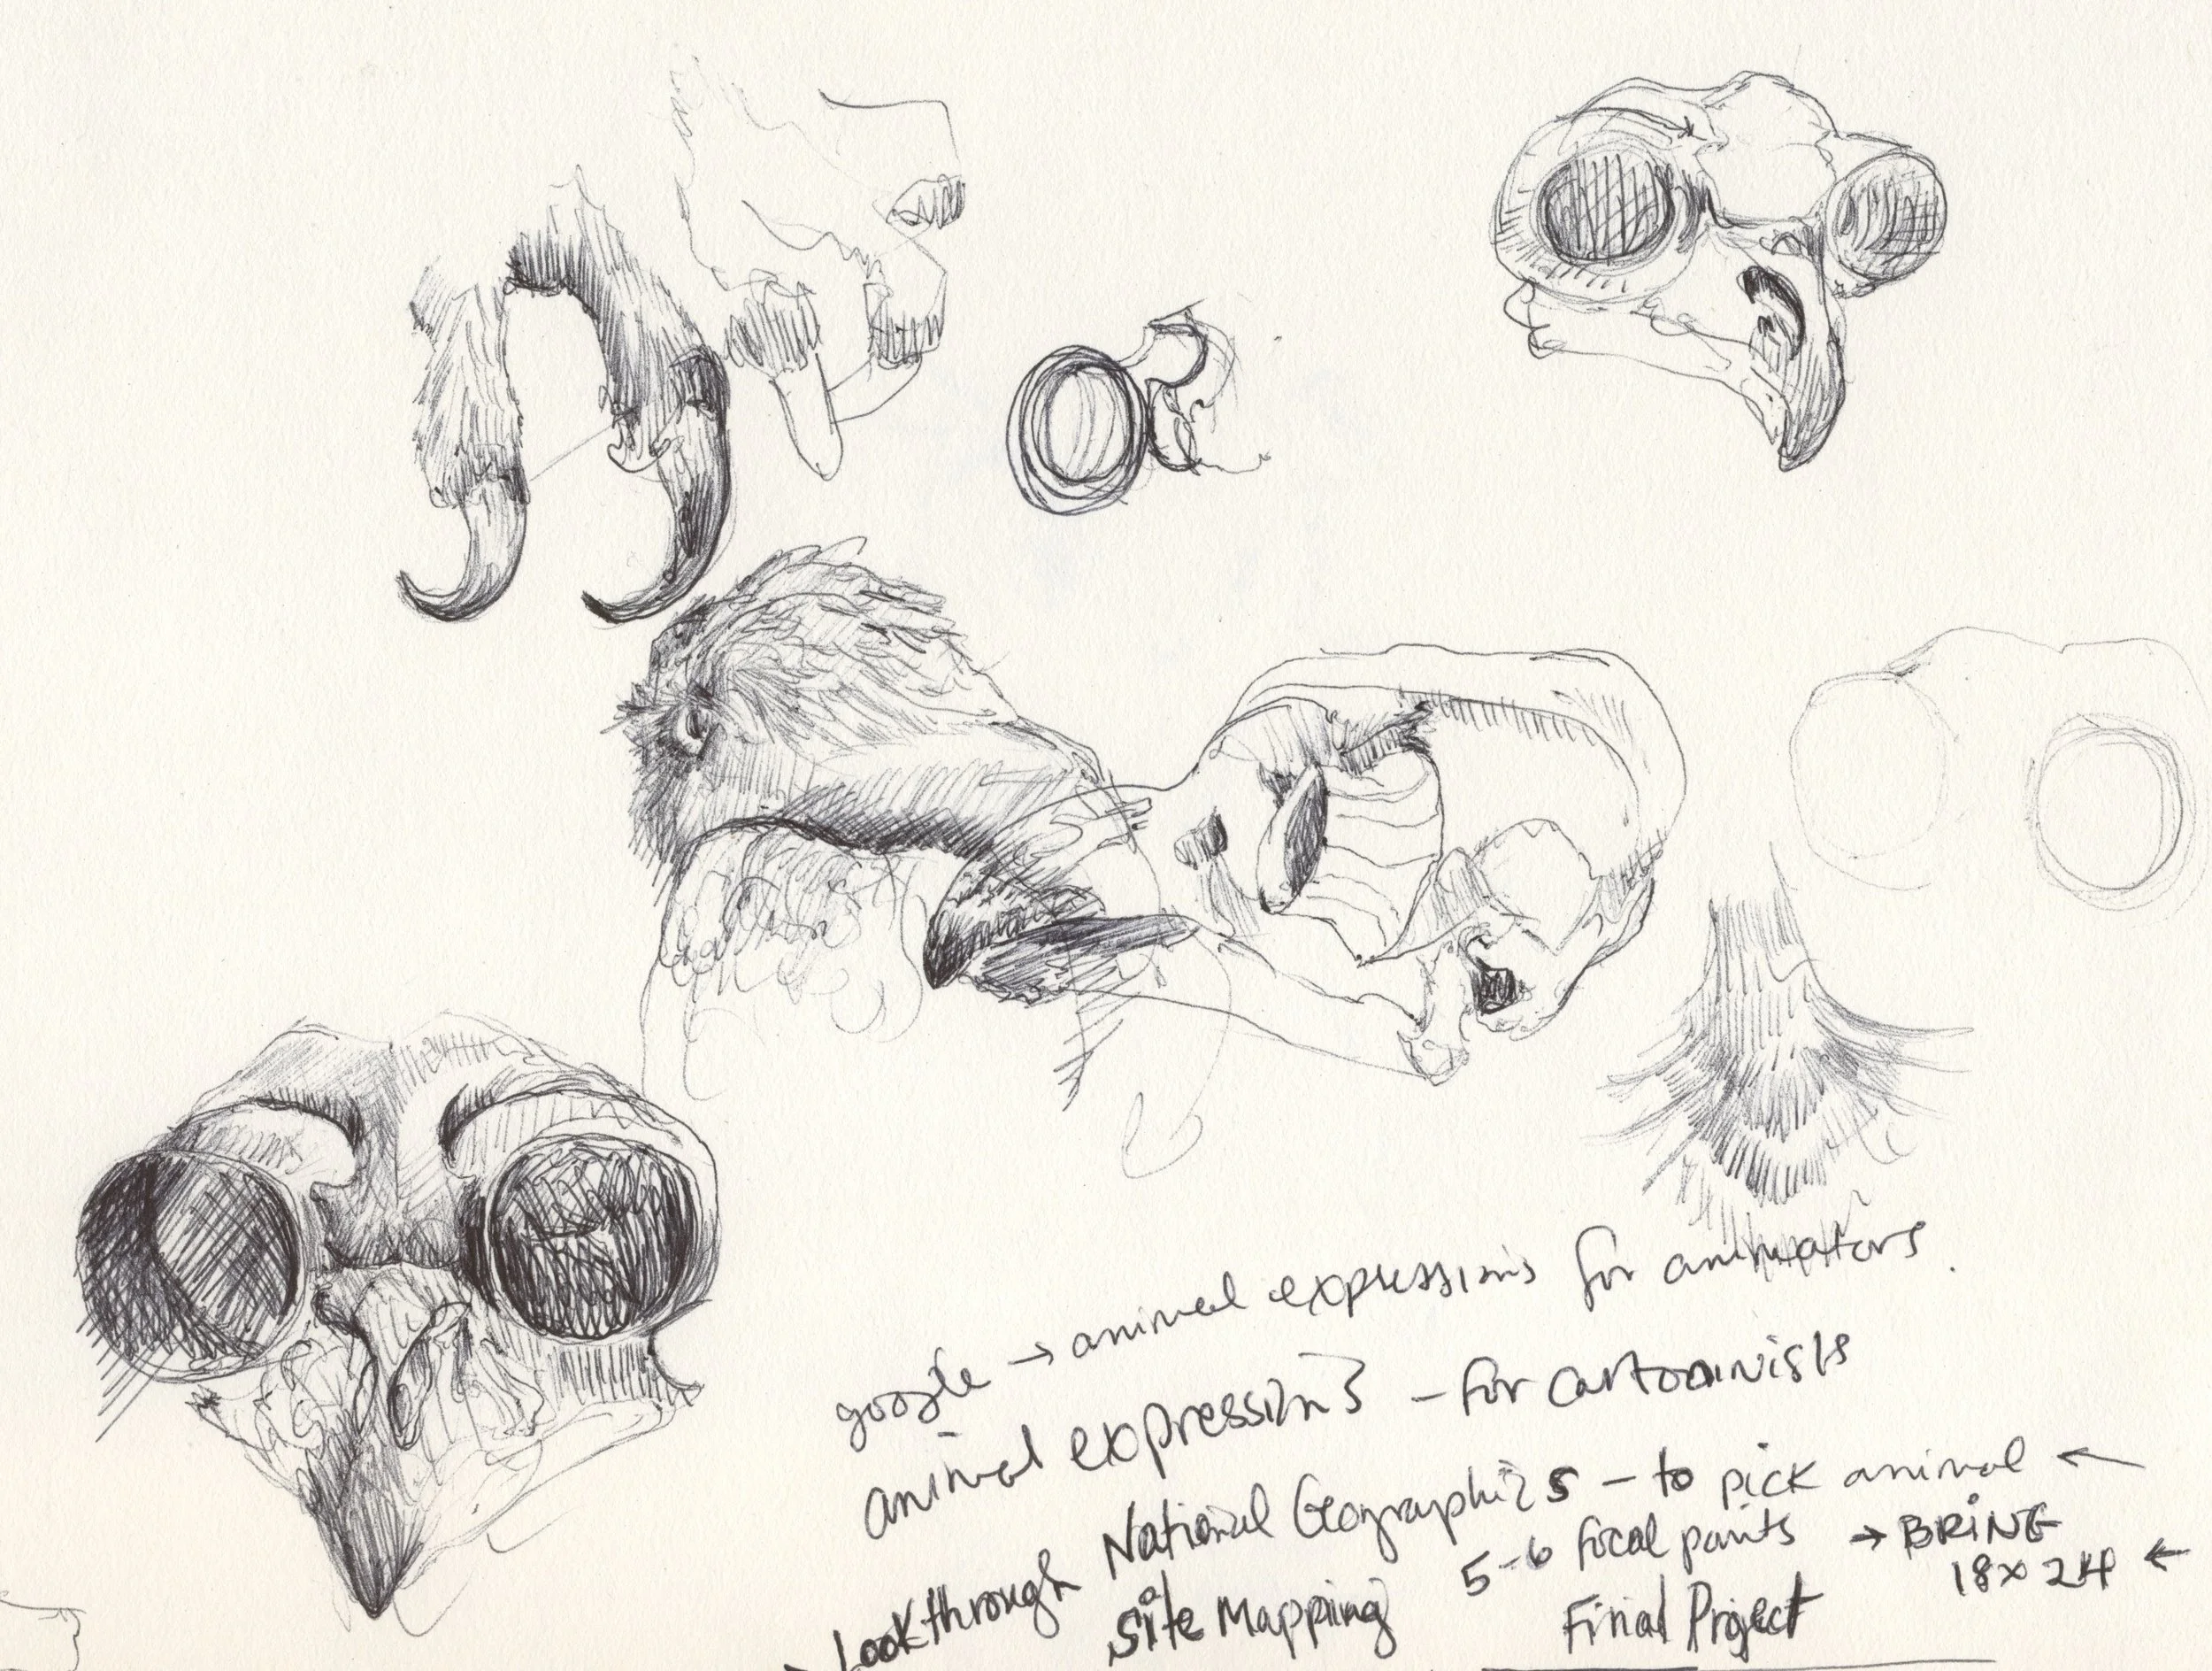 google → animal expressions for animators.
animal expressions - for cartoonists
Lookthrough National Geographics - to pick animal ←
5-6 focal points → BRING
18x24 ←
Site Mapping
Final Project